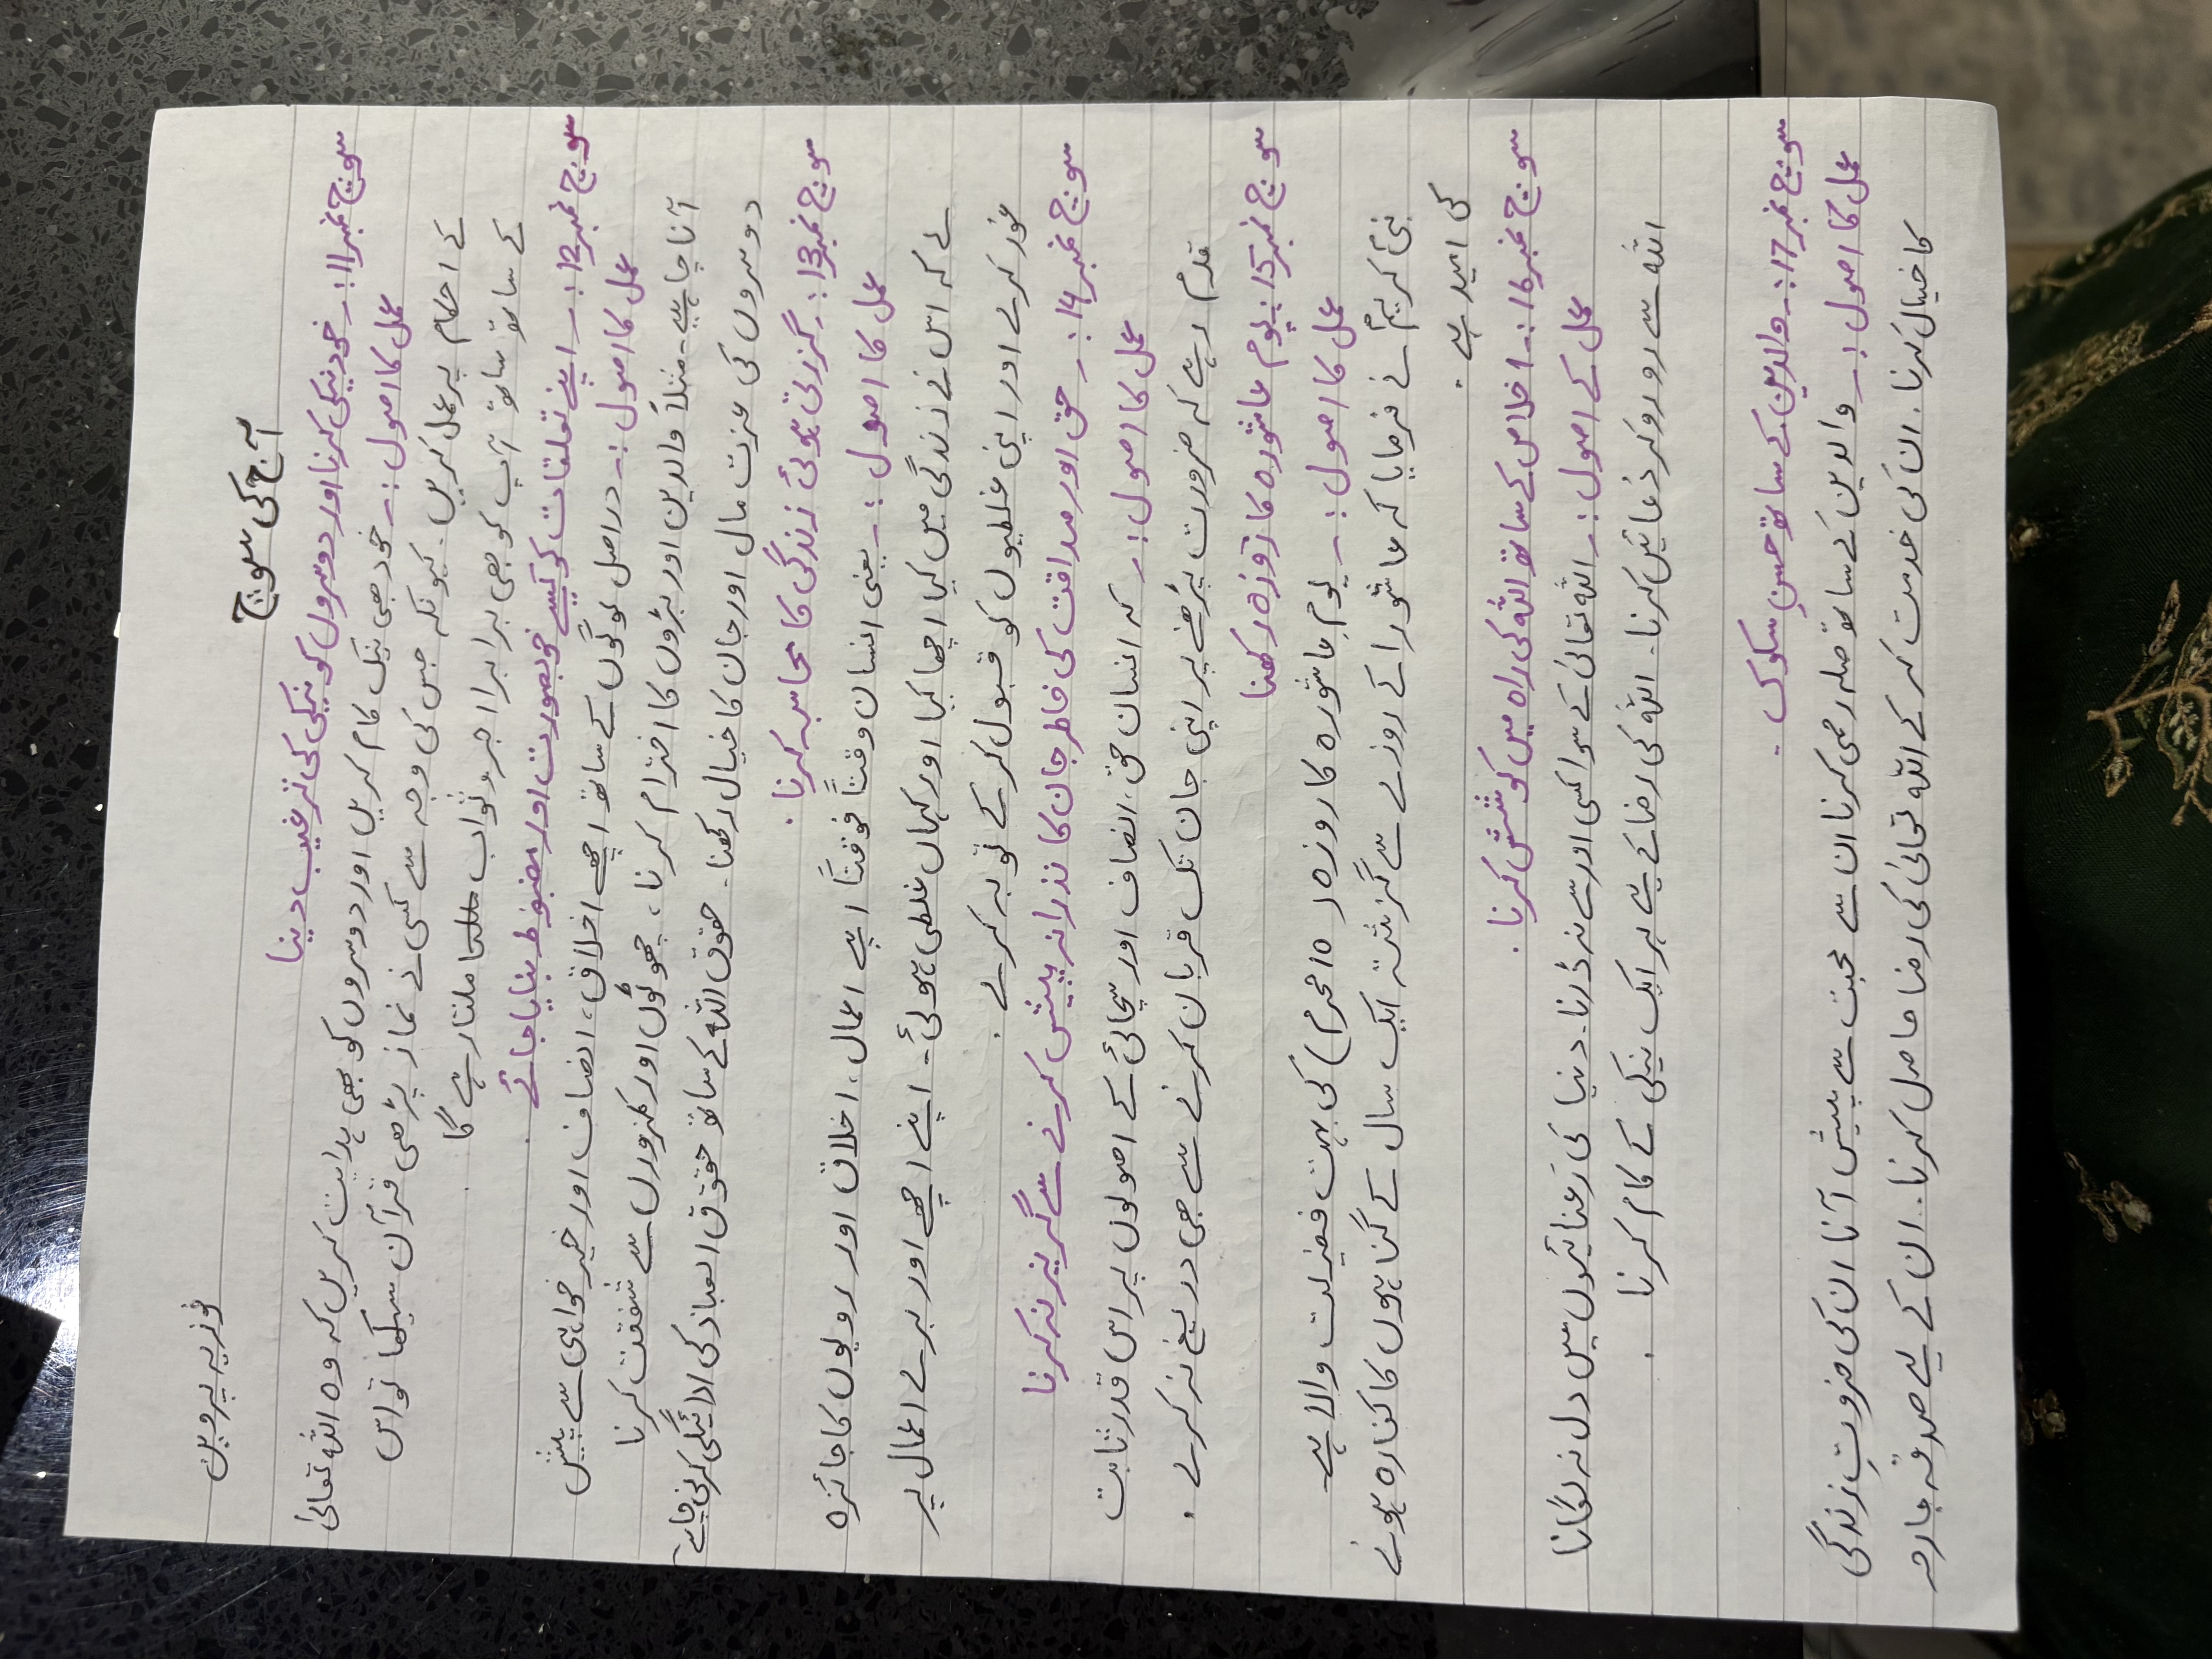 فوزیہ پروین
آج کی سوچ
سوچ نمبر11:۔ خود نیکی کرنا اور دوسروں کو نیکی کی ترغیب دینا
عمل کا اصول:۔ خود بھی نیک کام کریں اور دوسروں کو بھی ہدایت کریں کہ وہ اللہ تعالیٰ
کے احکام پر عمل کریں۔ کیونکہ جس کی وجہ سے کسی نے نماز پڑھی قرآن سیکھا تو اس
کے ساتھ ساتھ آپ کو بھی برابر اجر و ثواب ملتا رہے گا
سوچ نمبر12:۔ اپنے تعلقات کو کیسے خوبصورت اور مضبوط بنایا جائے۔
عمل کا اصول:۔ دراصل لوگوں کے ساتھ اچھے اخلاق، انصاف اور خیر خواہی سے پیش
آنا چاہیے۔ مثلاً والدین اور بڑوں کا احترام کرنا، چھوٹوں اور کمزوروں سے شفقت کرنا
دوسروں کی عزت مال اور جان کا خیال رکھنا۔ حقوق اللہ کے ساتھ حقوق العباد کی ادائیگی کرنی چاہیے
سوچ نمبر13:۔ گزرتی ہوئی زندگی کا محاسبہ کرنا۔
عمل کا اصول:۔ یعنی انسان وقتاً فوقتاً اپنے اعمال، اخلاق اور رویوں کا جائزہ
لے کہ اس نے زندگی میں کیا اچھا کیا اور کہاں غلطی ہوئی۔ اپنے اچھے اور برے اعمال پر
غور کرے اور اپنی غلطیوں کو قبول کر کے توبہ کرے۔
سوچ نمبر14:۔ حق اور صداقت کی خاطر جان کا نذرانہ پیش کرنے سے گریز نہ کرنا
عمل کا اصول:۔ کہ انسان حق، انصاف اور سچائی کے اصولوں پر اس قدر ثابت
قدم رہے کہ ضرورت پڑھنے پر اپنی جان تک قربان کرنے سے بھی دریغ نہ کرے۔
سوچ نمبر15:۔ یوم عاشورہ کا روزہ رکھنا
عمل کا اصول:۔ یومِ عاشورہ کا روزہ (10 محرم) کی بہت فضیلت والا ہے۔
نبی کریمؐ نے فرمایا کہ عاشورا کے روزے سے گزشتہ ایک سال کے گناہوں کا کفارہ ہونے
کی امید ہے۔
سوچ نمبر16:۔ اخلاص کے ساتھ اللہ کی راہ میں کوشش کرنا۔
عمل کے اصول:۔ اللہ تعالیٰ کے سوا کسی اور سے نہ ڈرنا۔ دنیا کی رعنائیوں میں دل نہ لگانا
اللہ سے رو رو کر دعائیں کرنا۔ اللہ کی رضا کے لیے ہر ایک نیکی کے کام کرنا۔
سوچ نمبر17:۔ والدین کے ساتھ حسنِ سلوک۔
عمل کا اصول:۔ والدین کے ساتھ صلہ رحمی کرنا ان سے محبت سے پیش آنا ان کی ضروتِ زندگی
کا خیال کرنا۔ ان کی خدمت کر کے اللہ تعالیٰ کی رضا حاصل کرنا۔ ان کے لیے صدقہ جاریہ